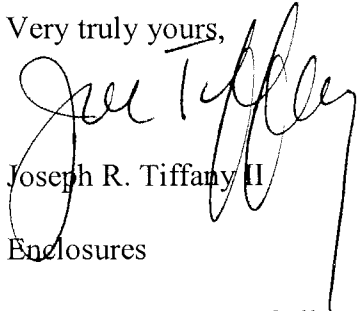 Very truly yours,
Joe Tiffany
Joseph R. Tiffany II
Enclosures